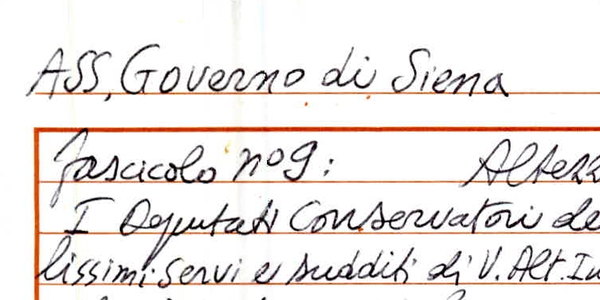 ASS, Governo di Siena
fascicolo nº 9: Altezz
I Deputati Conservatori de
lissimi servi e sudditi di V. Alt. Im